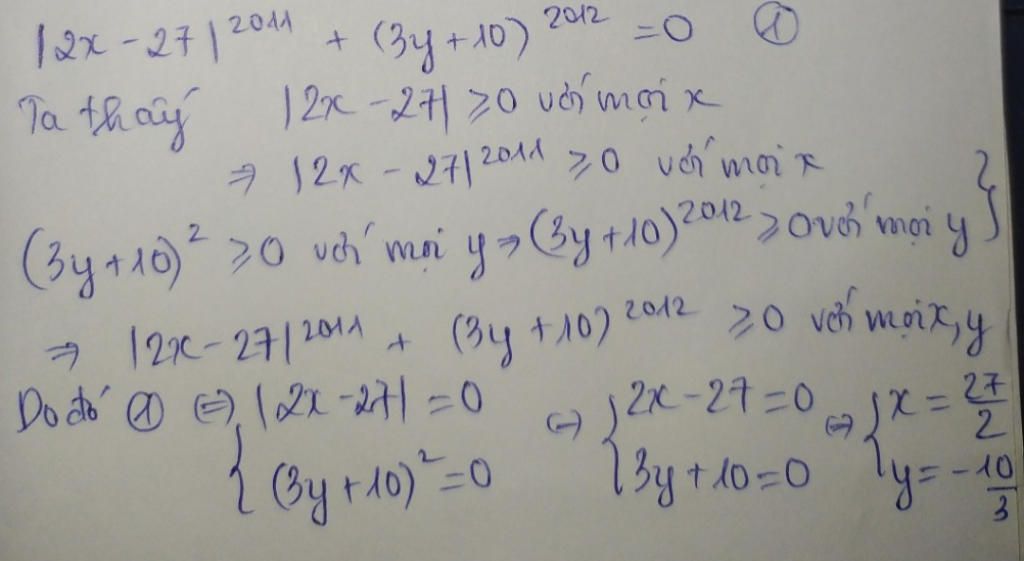 |2x - 27|²⁰¹¹ + (3y + 10)²⁰¹² = 0 ①
Ta thấy |2x - 27| ≥ 0 với mọi x
⇒ |2x - 27|²⁰¹¹ ≥ 0 với mọi x
(3y + 10)² ≥ 0 với mọi y ⇒ (3y + 10)²⁰¹² ≥ 0 với mọi y }
⇒ |2x - 27|²⁰¹¹ + (3y + 10)²⁰¹² ≥ 0 với mọi x, y
Do đó ① ⇔ { |2x - 27| = 0 ⇔ { 2x - 27 = 0 ⇔ { x = 27/2
(3y + 10)² = 0 3y + 10 = 0 y = - 10/3